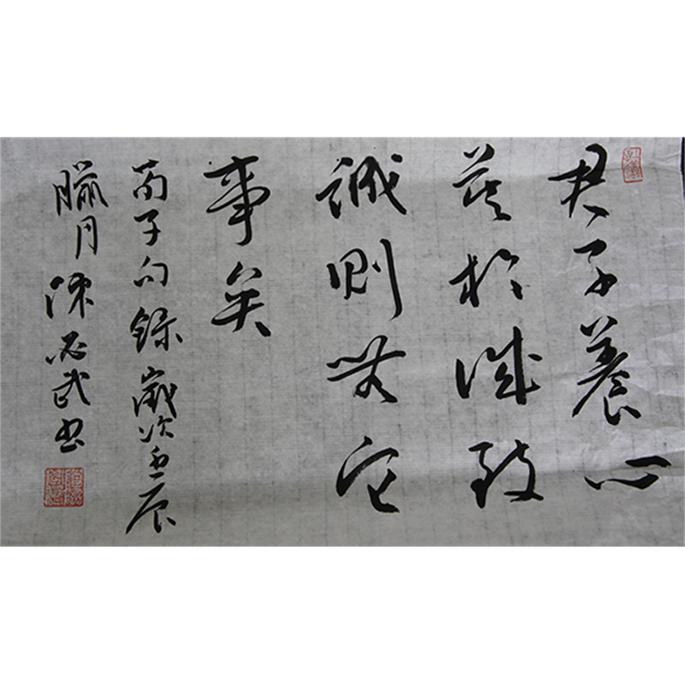 君子養心
莫於誠致
誠則無它
事矣
荀子句錄歲次壬辰
臘月陳必武书